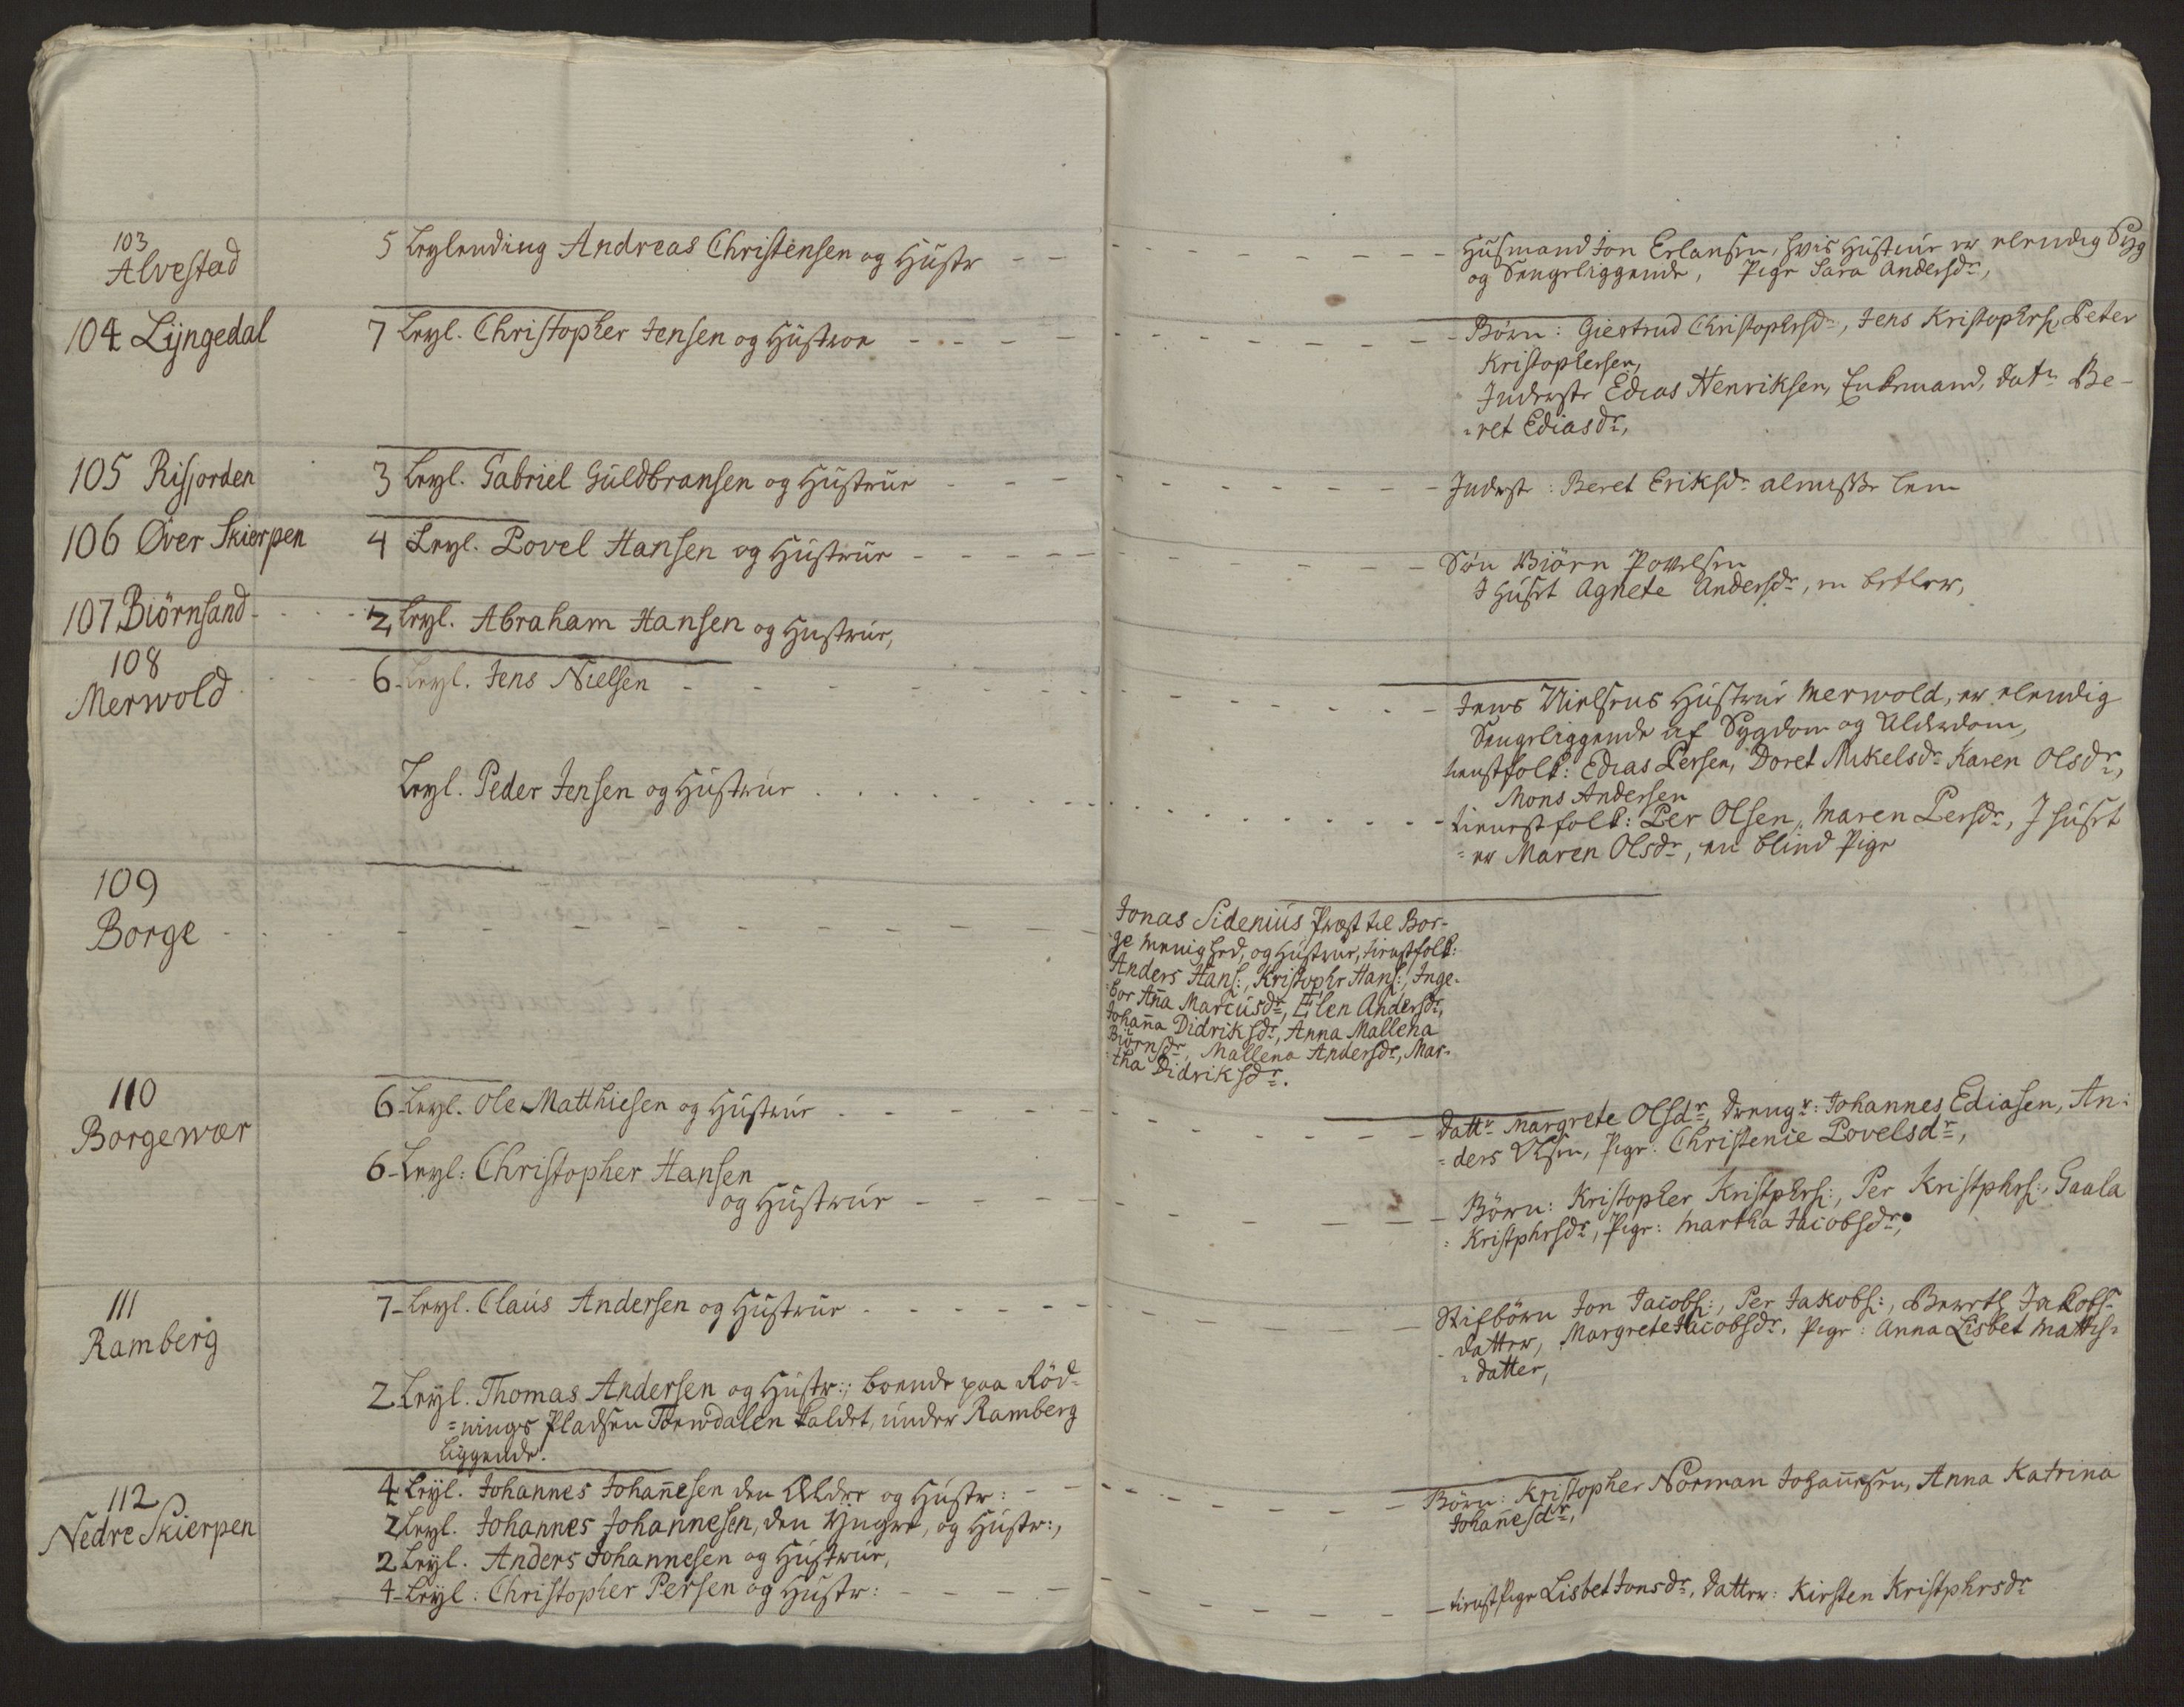 103
Alvestad
5 Leylending Andreas Christensen og Hustr
Husmand Jon Erlansen, hvis Hustrue er elendig Syg
og Sengeliggende, Pige Sara Andersdr,
104 Lijngedal
7 Leyl. Christopher Jensen og Hustroe
Börn: Giertrud Christophrsdr, Jens Kristophrs: Peter
Kristophersen,
Inderste Edias Henriksen, Enkemand, datr Be-
=ret Ediasdr,
105 Risjorden
3 Leyl. Gabriel Guldbransen og Hustrue
Inderste: Beret Eriksdr almisse lem
106 Över Skierpen
4 Leyl. Povel Hansen og Hustrue
Sön Biörn Povelsen
I Huset Agnete Andersdr, en betler,
107 Biörnsand
2, Leyl. Abraham Hansen og Hustrue,
108
Merwold
6 Leyl. Jens Nielsen
Jens Nielsens Hustrue Merwold, er elendig
Sengeliggende af Sygdom og Alderdom,
tienstfolk: Edias Persen, Doret Mikelsdr Karen Olsdr,
Mons Andersen
Leyl. Peder Jensen og Hustrue
tienestfolk: Per Olsen, Maren Persdr, I huset
=er Maren Olsdr, en blind Pige
109
Borge
Jonas Sidenius Præst til Bor-
ge Menighed, og Hustrue, tienstfolk:
Anders Hans:, Kristophr Hans:, Inge-
=bor Anna Marcusdr, Elen Andersdr,
Johanna Didriksdr, Anna Mallena
Biörnsdr, Mallena Andersdr, Mar-
=tha Didriksdr.
110
Borgewær
6 Leyl. Ole Matthiesen og Hustrue
Dattr Margrete Olsdr, Drengr: Johannes Ediasen, An-
=ders Olsen, Pige: Christenie Povelsdr,
6 Leyl: Christopher Hansen
og Hustrue
Börn: Kristopher Kristphrs:, Per Kristphrs:, Gaala
=Kristphrsdr, Pige: Martha Jacobsdr,
111
Ramberg
7 Leyl. Claus Andersen og Hustrue
Stifbörn Jon Jacobs:, Per Jakobs:, Bereth Jakobs-
-datter, Margrete Jacobsdr, Pige: Anna Lisbet Mattis-
=datter,
2 Leyl. Thomas Andersen og Hustr:, boende paa Röd-
=nings Pladsen Torwdalen kaldet, under Ramberg
liggende.
112
Nedre Skierpen
4 Leyl. Johannes Johannesen den Ældre og Hustr:
Börn: Kristopher Norman Johannesen, Anna Katrina
Johannesdr,
2 Leyl. Johannes Johannesen, den Yngre, og Hustr:,
2 Leyl. Anders Johannesen og Hustrue,
4 Leyl: Christopher Persen og Hustr:
tienstpige Lisbet Jonsdr, datter: Kirsten Kristphrsdr